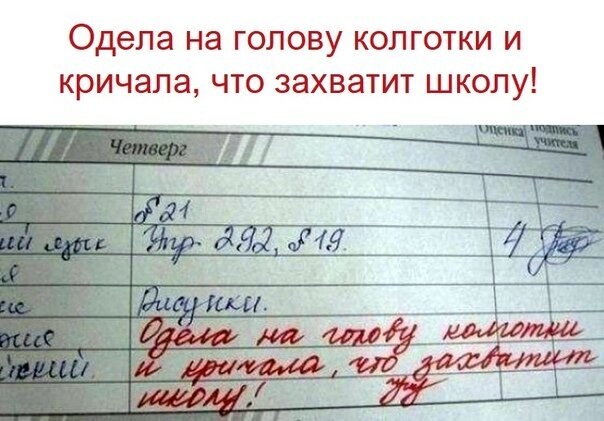 Одела на голову колготки и
кричала, что захватит школу!
Оценка Подпись
учителя
Четверг
§ 21
ий язык Упр. 292, § 19. 4
Рисунки.
Одела на голову колготки
и кричала, что захватит
школу!